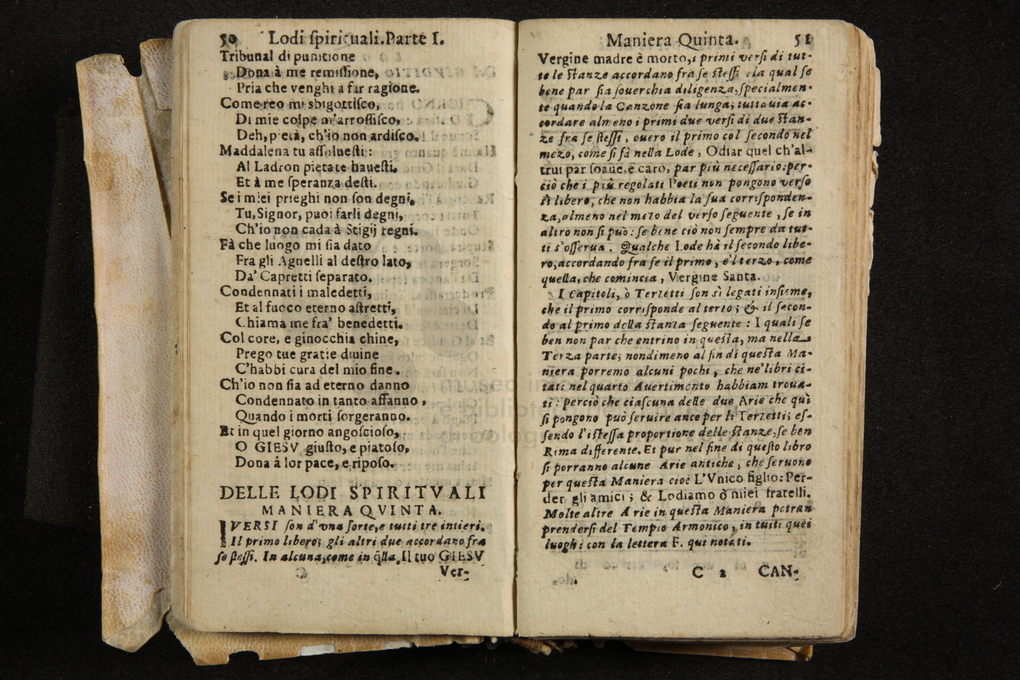 50 Lodi spirituali. Parte I.
Tribunal di punitione
Dona à me remissione,
Pria che venghi a far ragione.
Come reo mi sbigottisco,
Di mie colpe m'arrossisco,
Deh, pietà, ch'io non ardisco.
Maddalena tu assoluesti:
Al Ladron pietate hauesti.
Et à me speranza desti.
Se i miei prieghi non son degni,
Tu, Signor, puoi farli degni,
Ch'io non cada à Stigij regni.
Fà che luogo mi sia dato
Fra gli Agnelli al destro lato,
Da' Capretti separato.
Condennati i maledetti,
Et al fuoco eterno astretti,
Chiama me fra' benedetti.
Col core, e ginocchia chine,
Prego tue gratie diuine
C'habbi cura del mio fine.
Ch'io non sia ad eterno danno
Condennato in tanto affanno,
Quando i morti sorgeranno.
Et in quel giorno angoscioso,
O GIESV giusto, e piatoso,
Dona à lor pace, e riposo.
DELLE LODI SPIRITVALI
MANIERA QVINTA.
I VERSI son d'vna sorte, e tutti tre intieri.
Il primo libero; gli altri due accordano fra
se stessi. In alcuna, come in q̃lla, Il tuo GIESV
Ver-
Maniera Quinta. 51
Vergine madre è morto, i primi versi di tut-
te le stanze accordano fra se stessi: la qual se
bene par sia souerchia diligenza, specialmen-
te quando la Canzone sia lunga; tuttauia ac-
cordare almeno i primi due versi di due stan-
ze fra se stessi, ouero il primo col secondo nel
mezo, come si fà nella Lode, Odiar quel ch'al-
trui par soaue, e caro, par più necessario: per-
ciò che i più regolati Poeti non pongono verso
sì libero, che non habbia la sua corrisponden-
za, almeno nel mezo del verso seguente, se in
altro non si può: se bene ciò non sempre da tut-
ti s'osserua. Qualche Lode hà il secondo libe-
ro, accordando fra se il primo, e'l terzo, come
quella, che comincia, Vergine Santa.
I Capitoli, ò Terzetti son sì legati insieme,
che il primo corrisponde al terzo; & il secon-
do al primo della stanza seguente: I quali se
ben non par che entrino in questa, ma nella
Terza parte; nondimeno al fin di questa Ma-
niera porremo alcuni pochi, che ne' libri ci-
tati nel quarto Auertimento habbiam troua-
ti: perciò che ciascuna delle due Arie che quì
si pongono può seruire anco per li Terzetti; es-
sendo l'istessa proportione delle stanze, se ben
Rima differente. Et pur nel fine di questo libro
si porranno alcune Arie antiche, che seruono
per questa Maniera cioè L'Vnico figlio: Per-
der gli amici; & Lodiamo ò miei fratelli.
Molte altre Arie in questa Maniera potran
prendersi del Tempio Armonico, in tutti quei
luoghi con la lettera F. qui notati.
C 2 CAN-